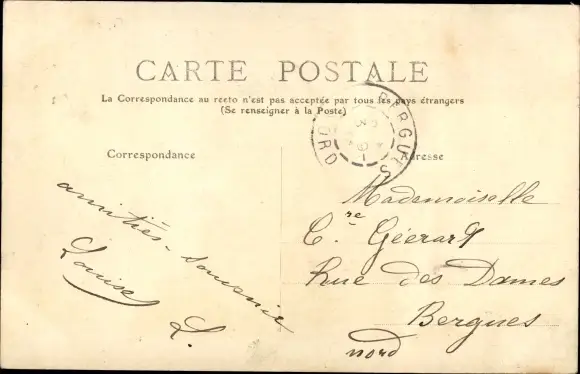 CARTE POSTALE
La Correspondance au recto n'est pas acceptée par tous les pays étrangers
(Se renseigner à la Poste)
Correspondance
Adresse
BERGUES
NORD
amitiés - souvenir
Louise L.
Mademoiselle
Rue des Dames
Bergues
nord